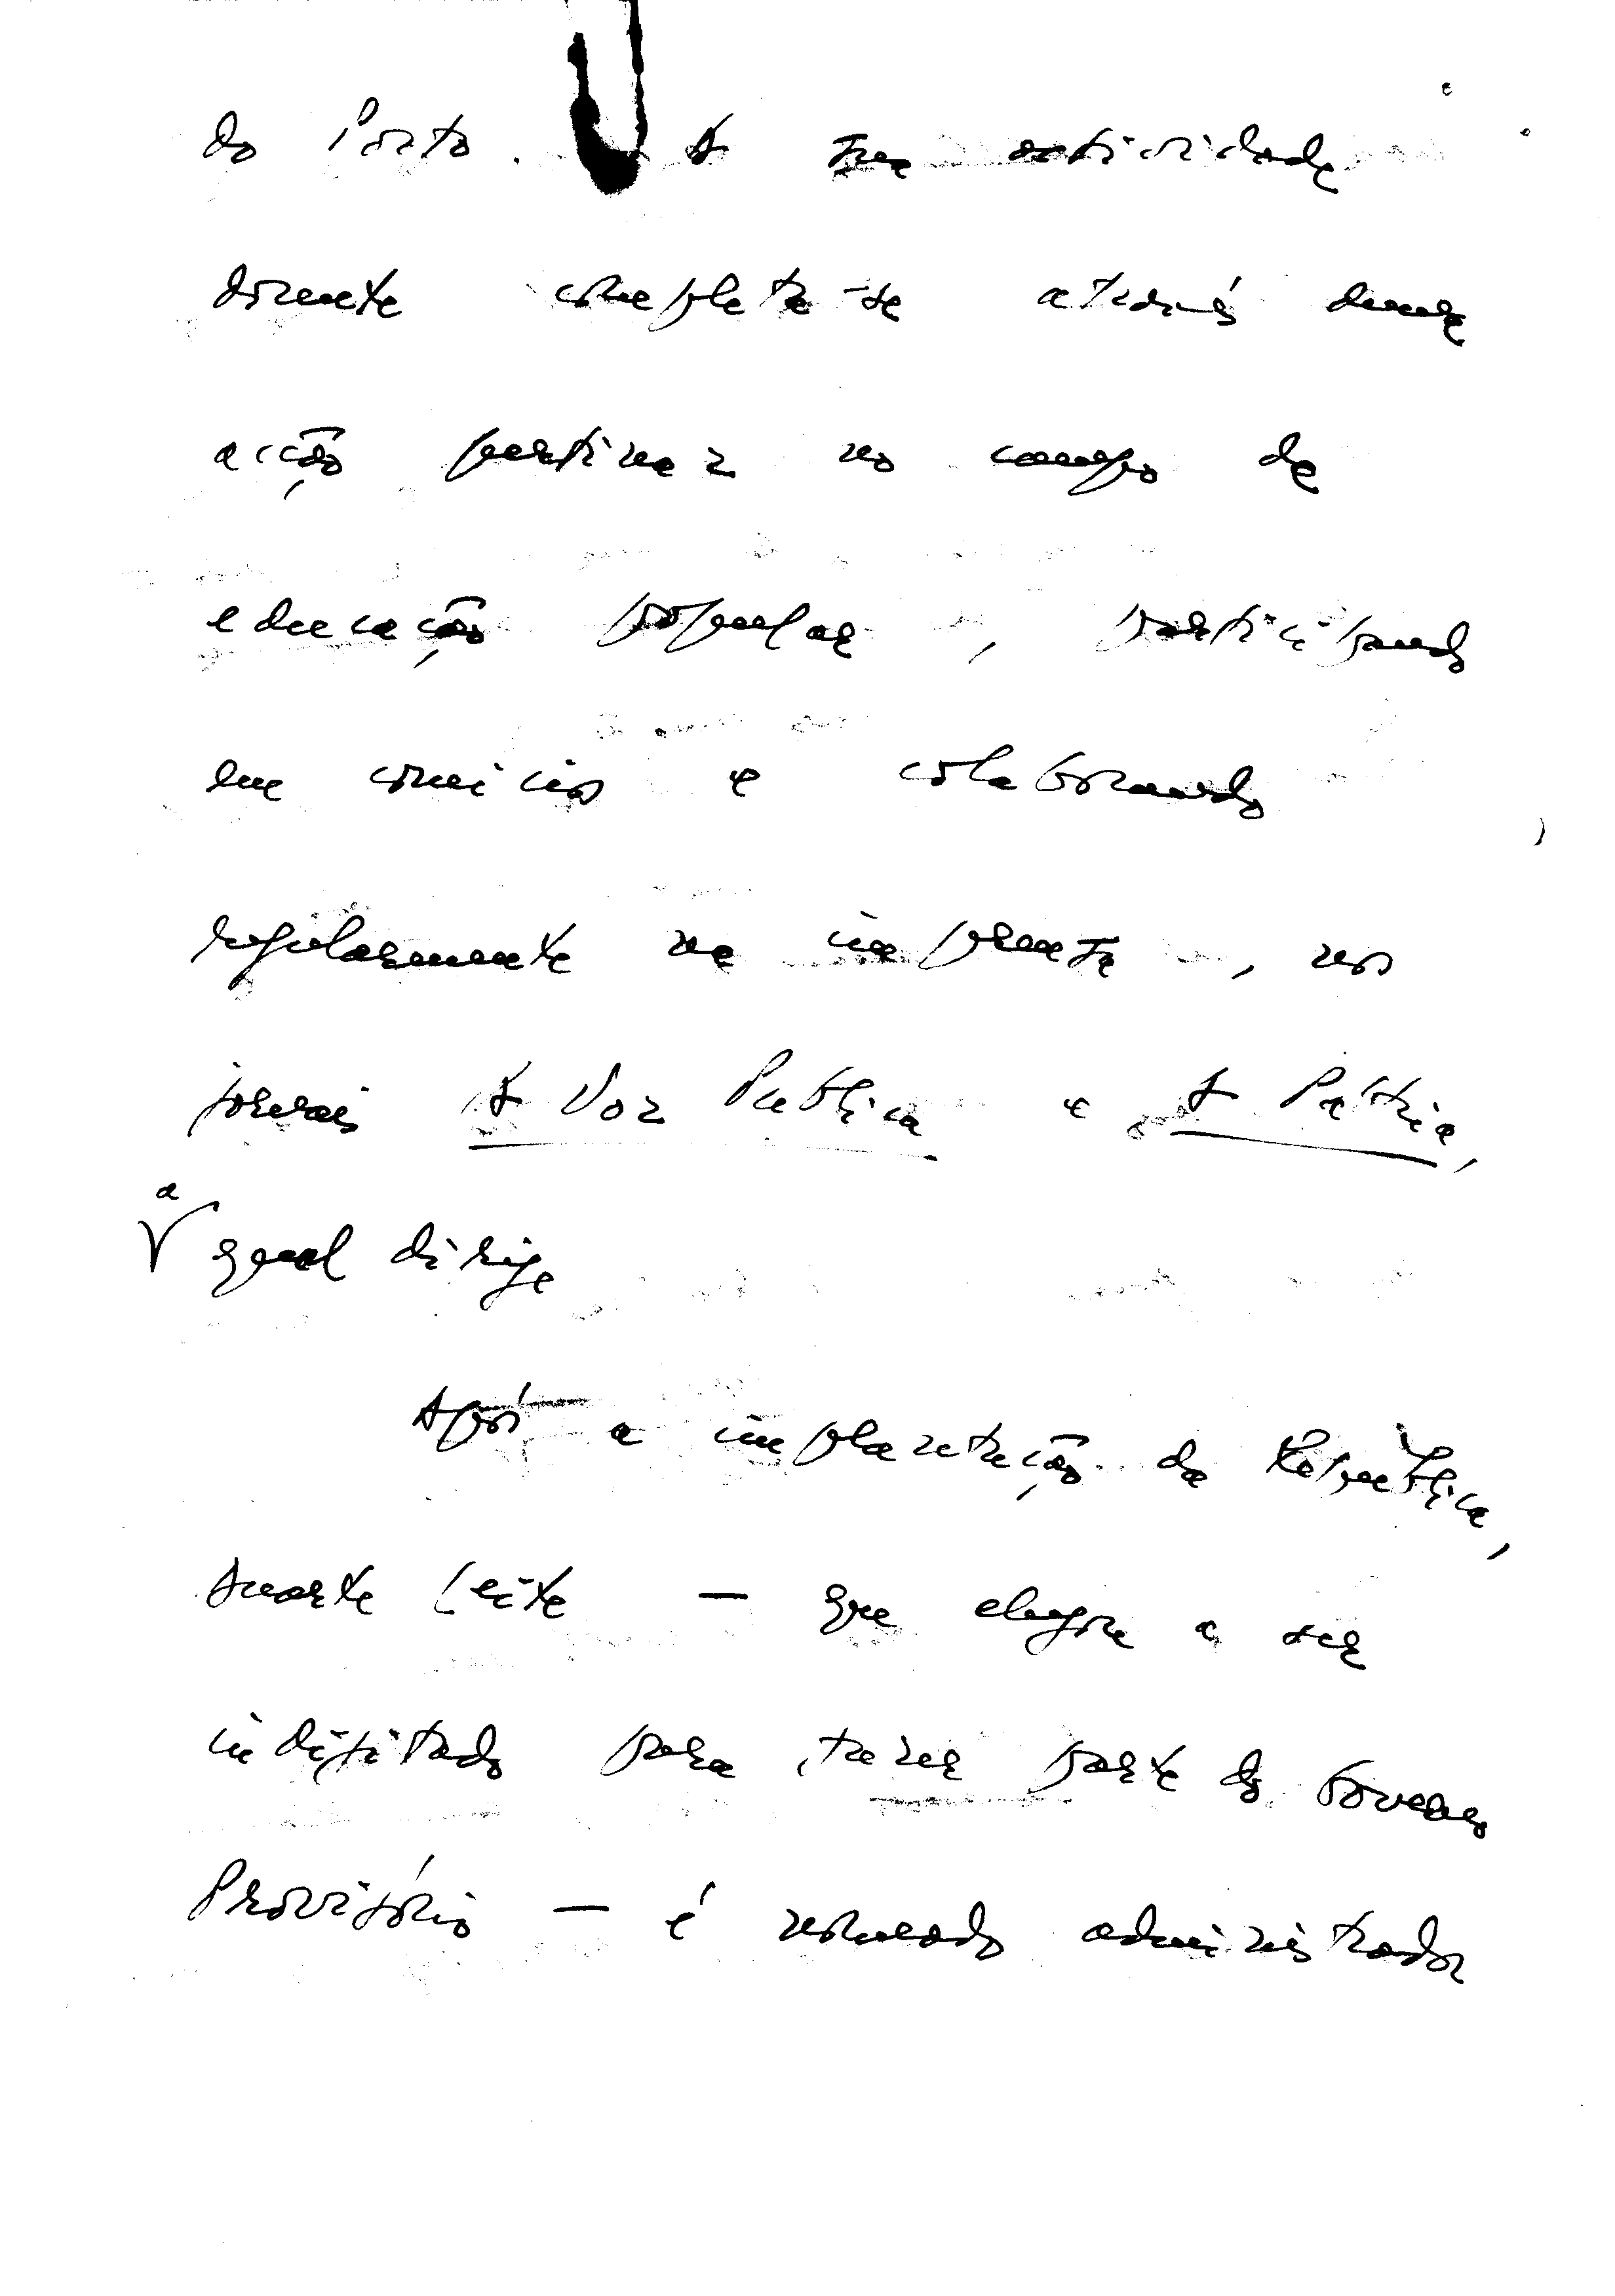 do Porto. A sua actividade
docente completa-se através duma
acção pertinaz no campo da
educação popular, participando
em comícios e colaborando
regularmente na imprensa, nos
jornais A Voz Publica e A Pátria,
a qual dirige
Após a implantação da República,
Duarte Leite — que chegara a ser
indigitado para fazer parte do Governo
Provisório — é nomeado administrador